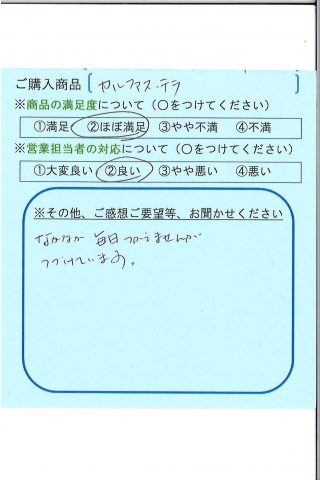 ご購入商品〔カルファス・テラ〕
※商品の満足度について(○をつけてください)
①満足 ②ほぼ満足 ③やや不満 ④不満
※営業担当者の対応について(○をつけてください)
①大変良い ②良い ③やや悪い ④悪い
※その他、ご感想ご要望等、お聞かせください
なかなか 毎日 つかえませんが
つづけています。